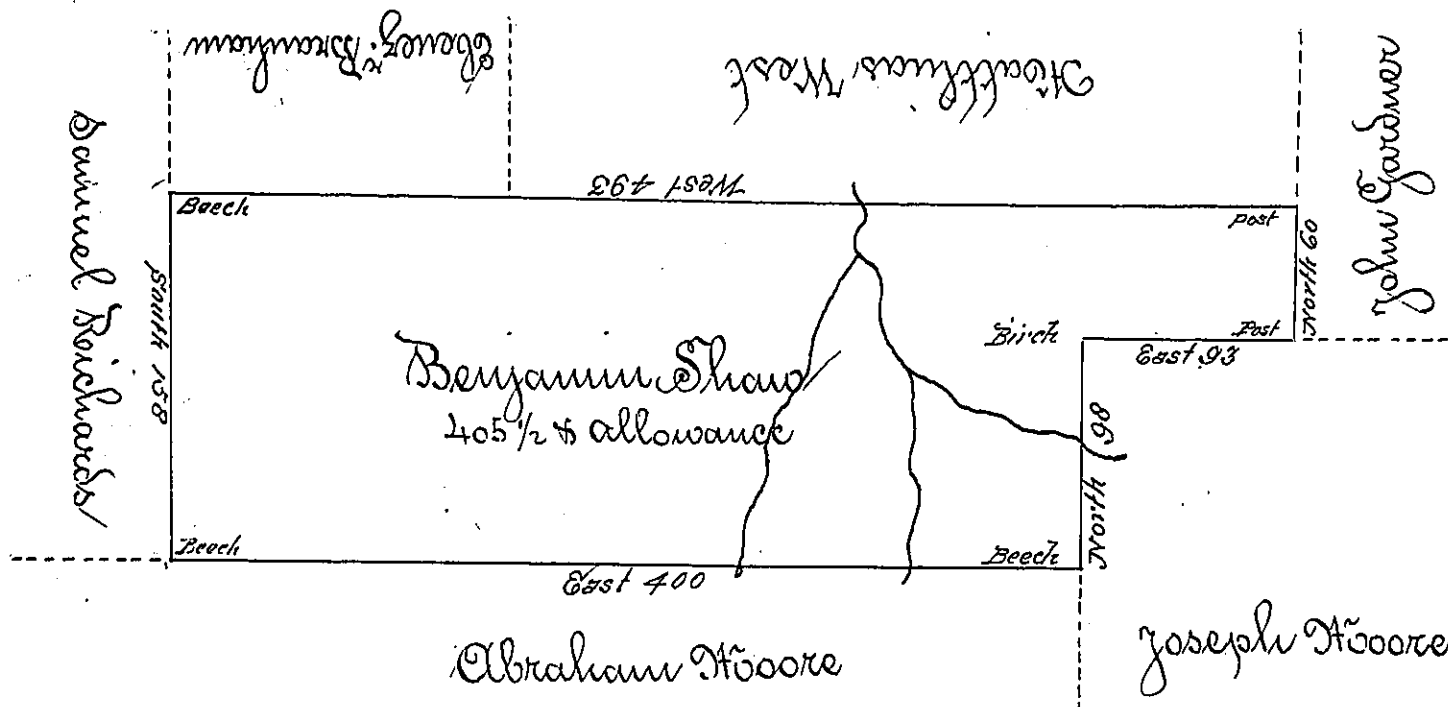 Ebenez.r Branham
Matthias West
John Gardner
Samuel Richards
West 493
Beech
post
North 60
South 158
Birch
Post
East 93
Benjamin Shaw
405 1/2 & allowance
North 98
Beech
Beech
East 400
Abraham Moore
Joseph Moore